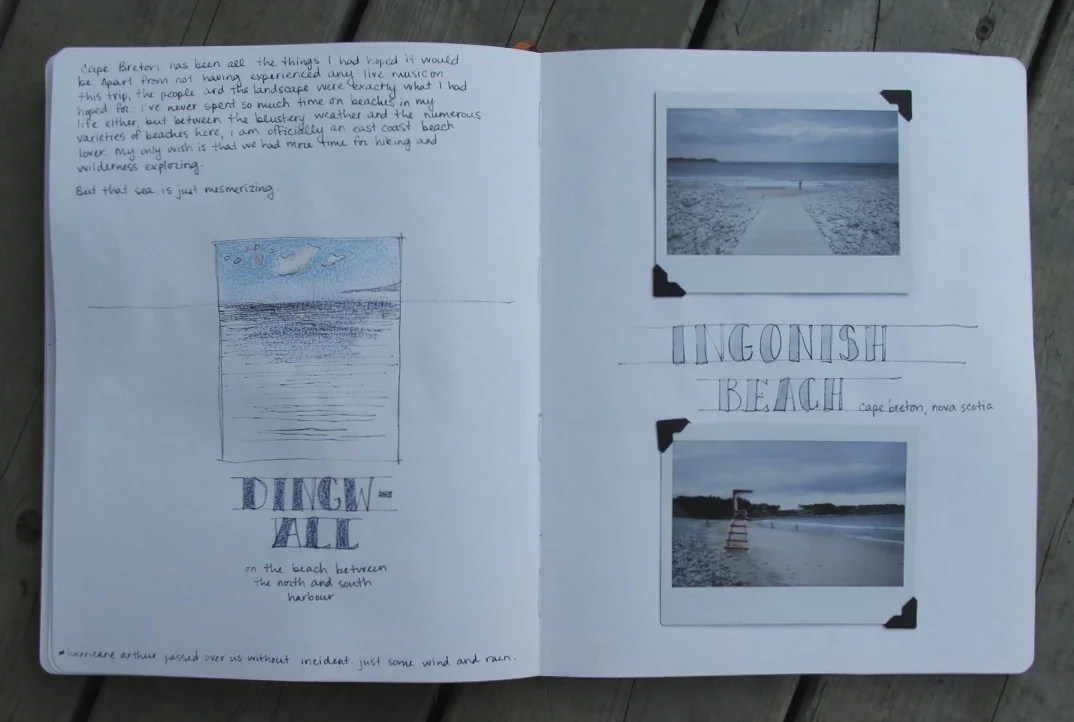 Cape Breton has been all the things I had hoped it would
be. Apart from not having experienced any live music on
this trip, the people and the landscape were exactly what I had
hoped for. I've never spent so much time on beaches in my
life either, but between the blustery weather and the numerous
varieties of beaches here, i am officially an east coast beach
lover. My only wish is that we had more time for hiking and
wilderness exploring.
But that sea is just mesmerizing.
DINGW-
ALL
on the beach between
the north and south
harbour
*hurricane arthur passed over us without incident. just some wind and rain.
INGONISH
BEACH
cape breton, nova scotia